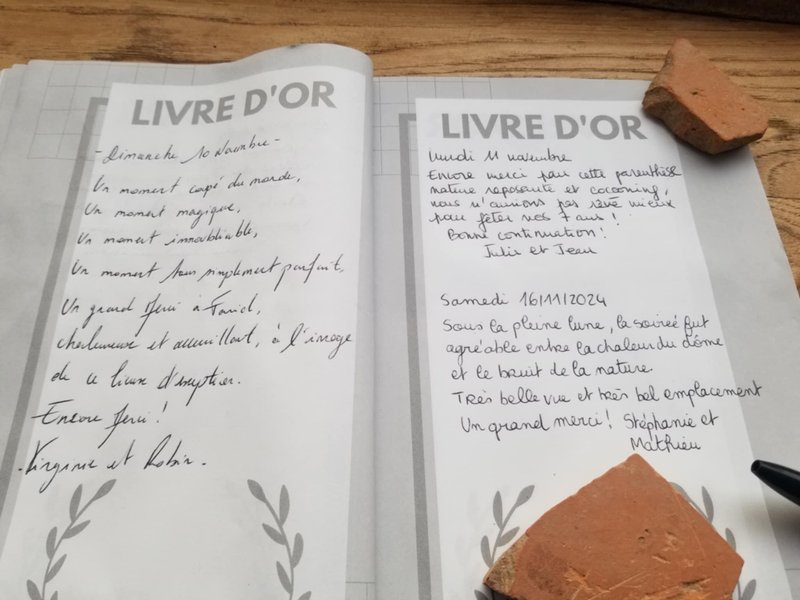 LIVRE D'OR
- Dimanche 10 Novembre -
Un moment coupé du monde,
Un moment magique,
Un moment innoubliable,
Un moment tous simplement parfait,
Un grand Merci à Farid,
chaleureux et acceuillant, à l'image
de ce lieux d'exeption.
Encore Merci !
- Virginie et Robin -
LIVRE D'OR
Lundi 11 novembre
Encore merci pour cette parenthèse
nature reposante et cocooning,
nous n'aurions pas rêvé mieux
pour fêter nos 7 ans !
Bonne continuation !
Julie et Jean
Samedi 16/11/2024
Sous la pleine lune, la soireé fut
agréable entre la chaleur du dôme
et le bruit de la nature.
Très belle vue et très bel emplacement
Un grand merci ! Stéphanie et
Mathieu